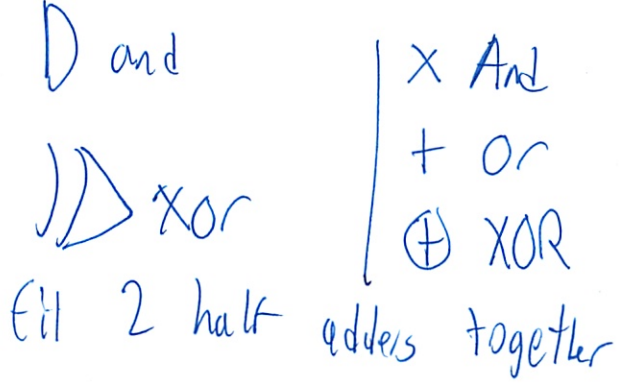 D and
x And
+ Or
XOR
⊕ XOR
2 half adders together